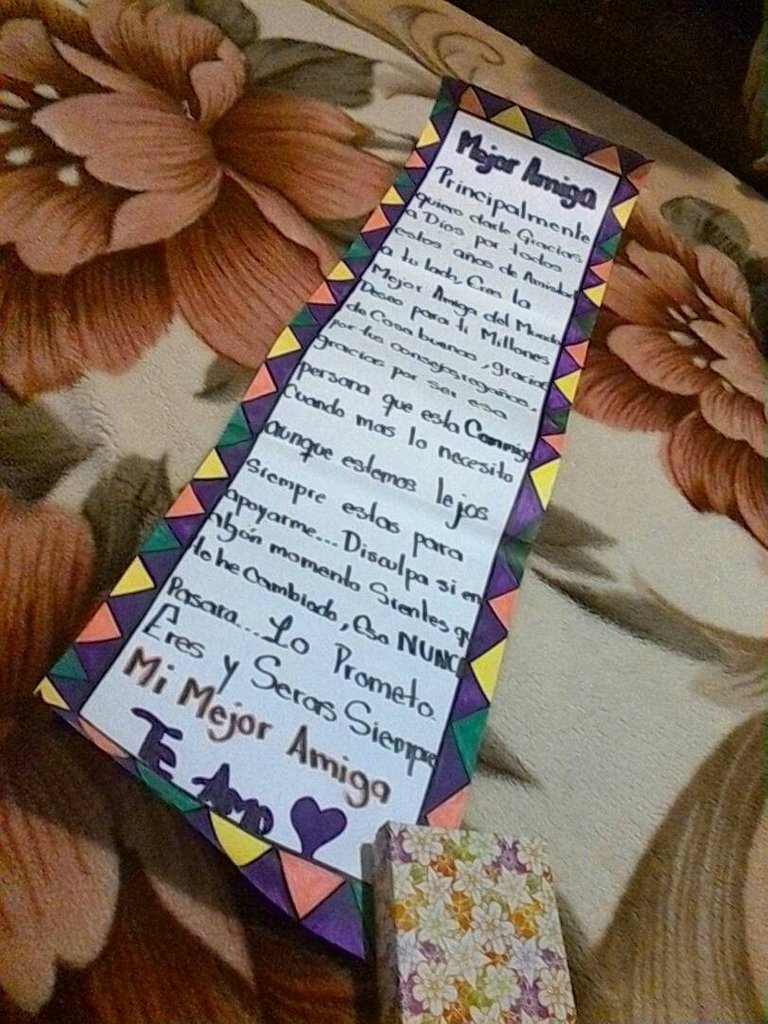 Mejor Amiga
Principalmente
quiero darle Gracias
a Dios por todos
estos años de Amistad
a tu lado, Eres la
Mejor Amiga del Mundo
Deseo para ti Millones
de Cosa buenas, gracias
por tus consejos, regaños,
gracias por ser esa
persona que esta Conmigo
Cuando mas lo necesito
aunque estemos lejos
siempre estas para
apoyarme... Disculpa si en
algún momento Sientes q
te he Cambiado, Eso NUNCA
Pasara... Lo Prometo.
Eres y Seras Siempre
Mi Mejor Amiga
TE AMO